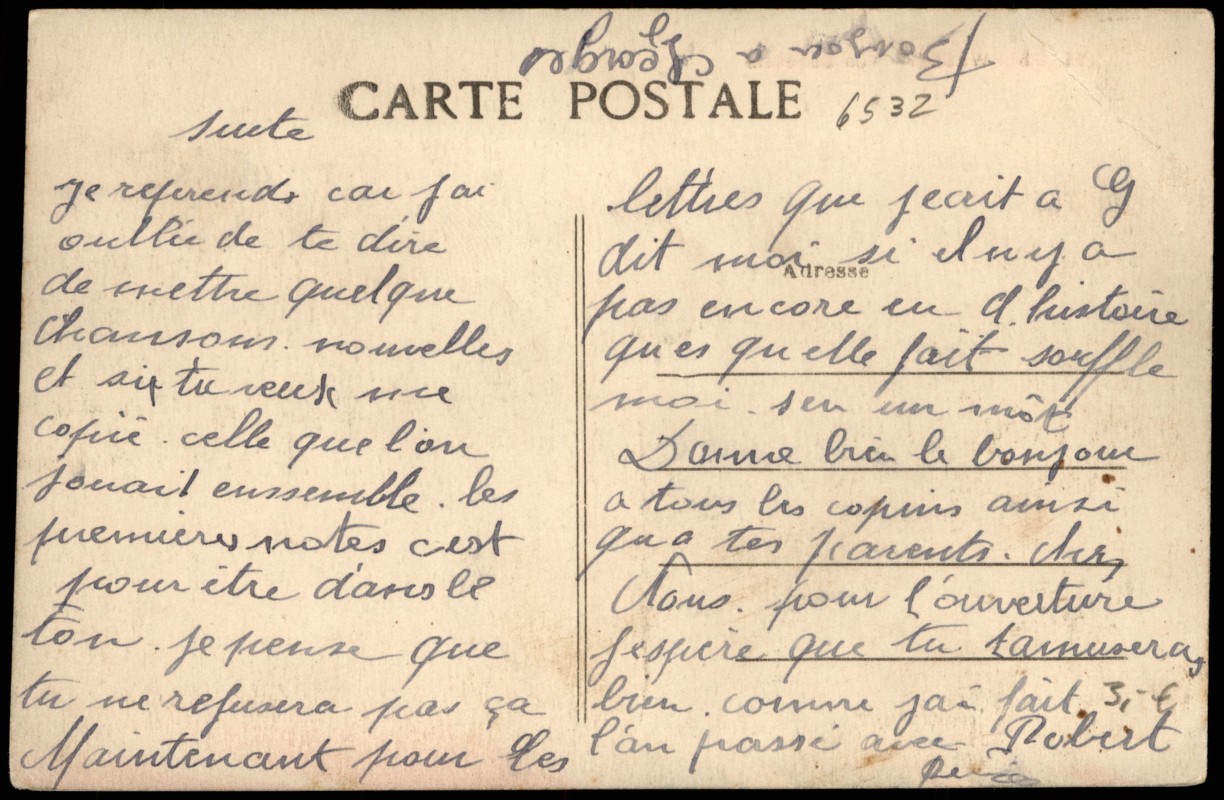 Bonjour a Georges
CARTE POSTALE
6532
suite
Je reprends car jai
oublie de te dire
de mettre quelque
chansons. nouvelles
et si tu veux me
copié. celle que l'on
jouait enssemble. les
premieres notes c'est
pour être dans le
ton. je pense que
tu ne refusera pas ça
Maintenant pour les
lettres que jecrit a G
dit moi si il n y a
Adresse
pas encore eu d. histoire
ques qu elle fait souffle
moi. s'en un môt
Donne bien le bonjour
a tous les copins ainsi
qu a tes parents. chez
Nous. pour l'ouverture
j'espère que tu tamuseras
bien. comme jai fait
l'an passé avec Robert